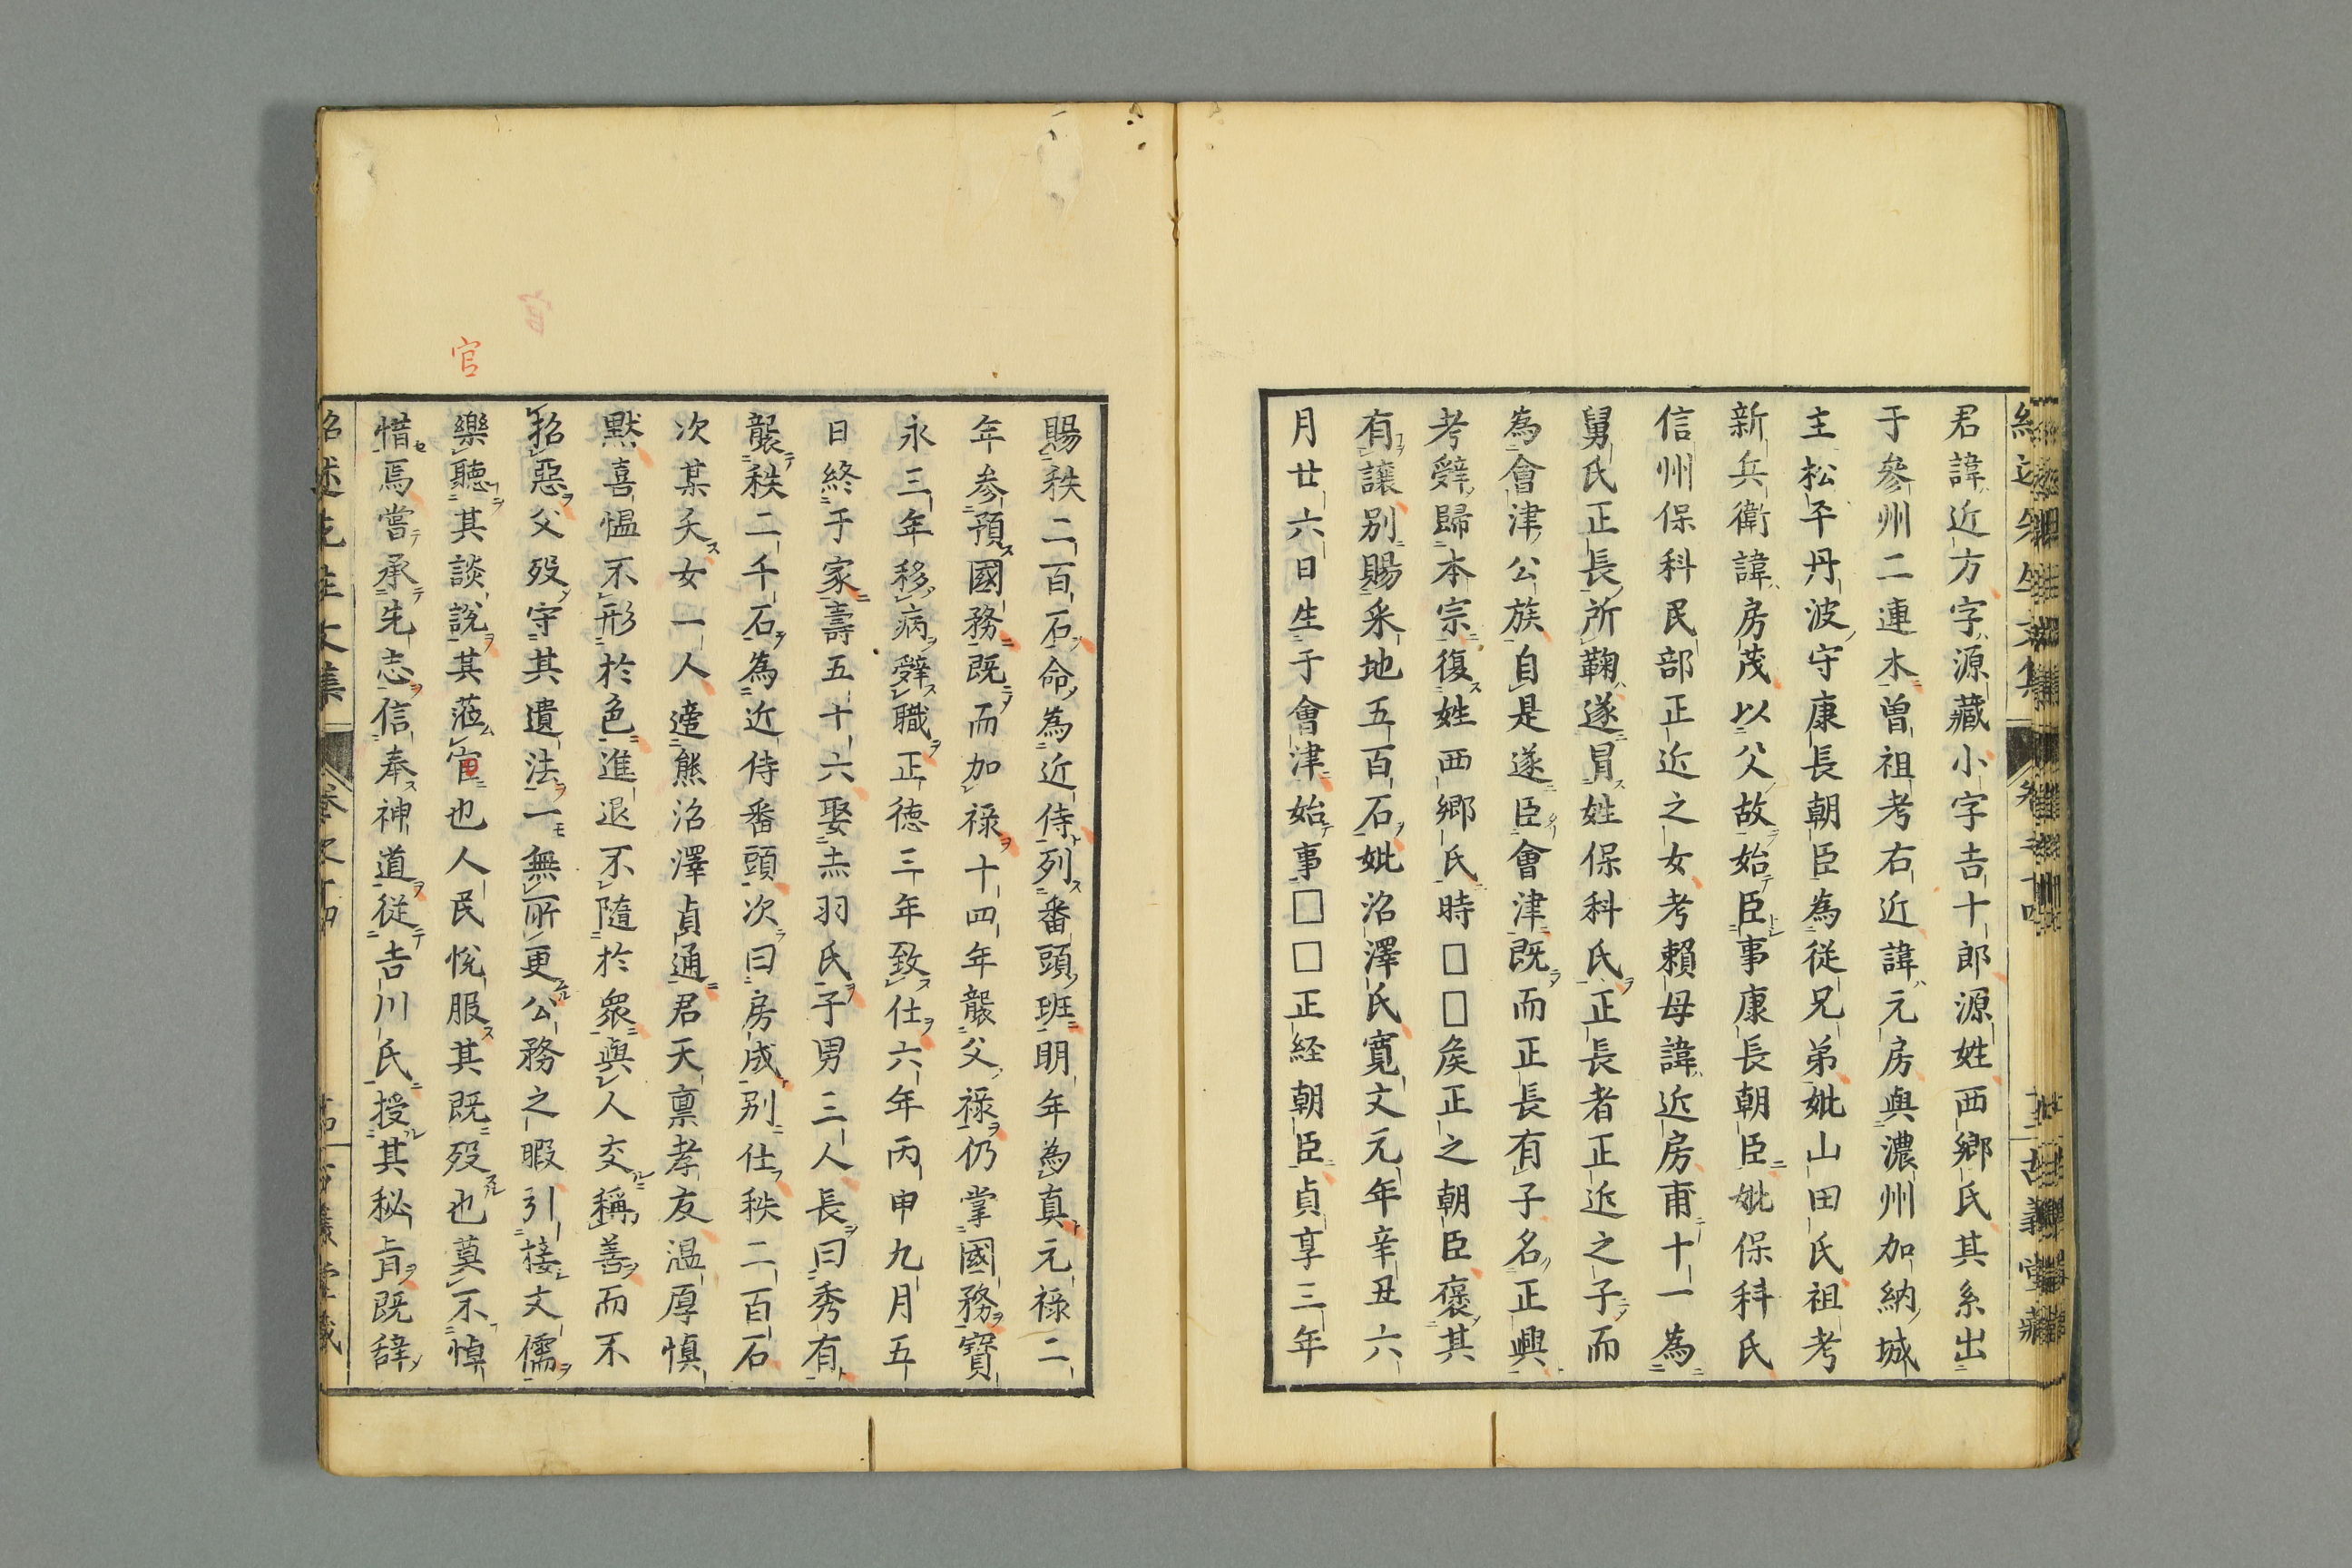 君諱近方字源藏小字吉十郎源姓西郷氏其系出
于參州二連木曽祖考右近諱元房與濃州加納城
主松平丹波守康長朝臣為從兄弟妣山田氏祖考
新兵衛諱房茂以父故始臣事康長朝臣妣保科氏
信州保科民部正近之女考賴母諱近房甫十一為
舅氏正長所鞠遂冐姓保科氏正長者正近之子而
為會津公族自是遂臣會津既而正長有子名正興
考辤歸本宗復姓西郷氏時□□矦正之朝臣褒其
有讓别賜采地五百石妣沼澤氏寛文元年辛丑六
月廿六日生于會津始事□□正経朝臣貞享三年
賜秩二百石命為近侍列番頭班明年為真元禄二
年参預國務既而加禄十四年襲父禄仍掌國務寳
永三年移病辤職正德三年致仕六年丙申九月五
日終于家壽五十六娶赤羽氏子男三人長曰秀有
襲秩二千石為近侍番頭次曰房成别仕秩二百石
次某夭女一人適熊沼澤貞通君天禀孝友温厚慎
黙喜愠不形於色進退不隨於衆與人交稱善而不
招惡父歿守其遺法一無所更公務之暇引接文儒
樂聽其談說其蒞官也人民悅服其既歿也莫不悼
惜焉嘗承先志信奉神道從吉川氏授其秘旨既辤
官
紹述先生文集